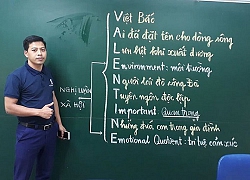 Việt Bắc
Ai đã đặt tên cho dòng sông
Lưu biệt khi xuất dương
Environment: môi trường
Người lái đò sông Đà
Tuyên ngôn độc lập
Important: Quan trọng
Những đứa con trong gia đình
Emotional Quotient: trí tuệ cảm xúc
NGHỊ LUẬN
XÃ HỘI